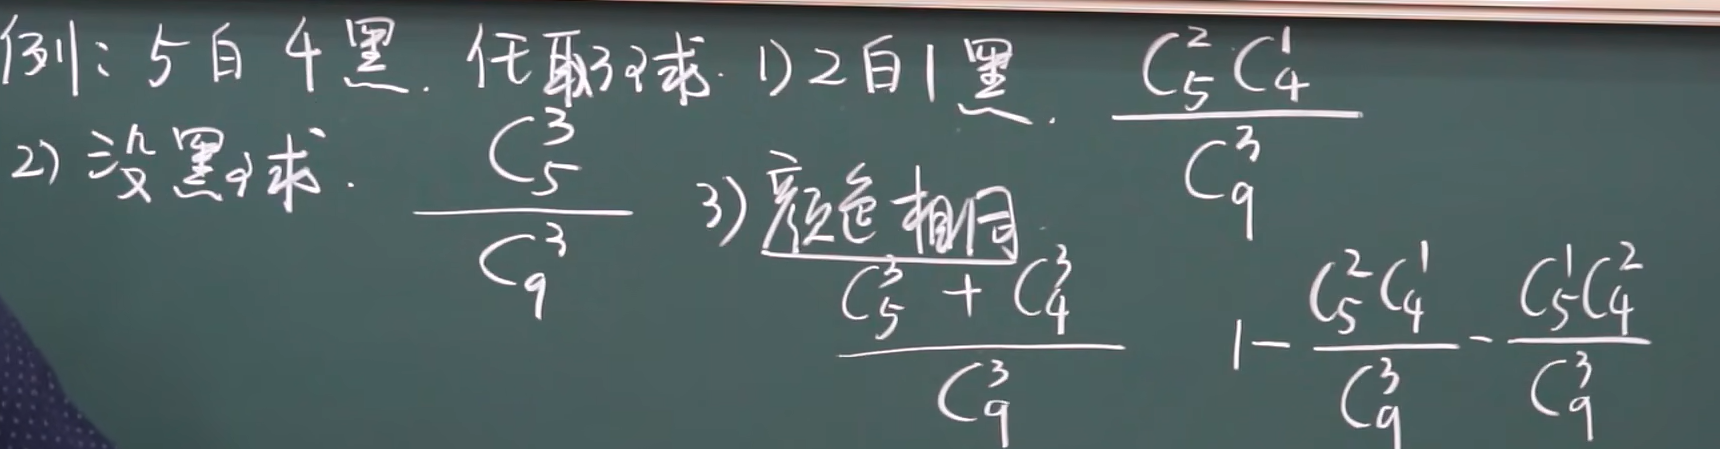 例: 5白4黑. 任取3球. 1) 2白1黑. C₅²C₄¹/C₉³
2) 没黑球. C₅³/C₉³
3) 颜色相同. (C₅³+C₄³)/C₉³ 1-C₅²C₄¹/C₉³-C₅¹C₄²/C₉³